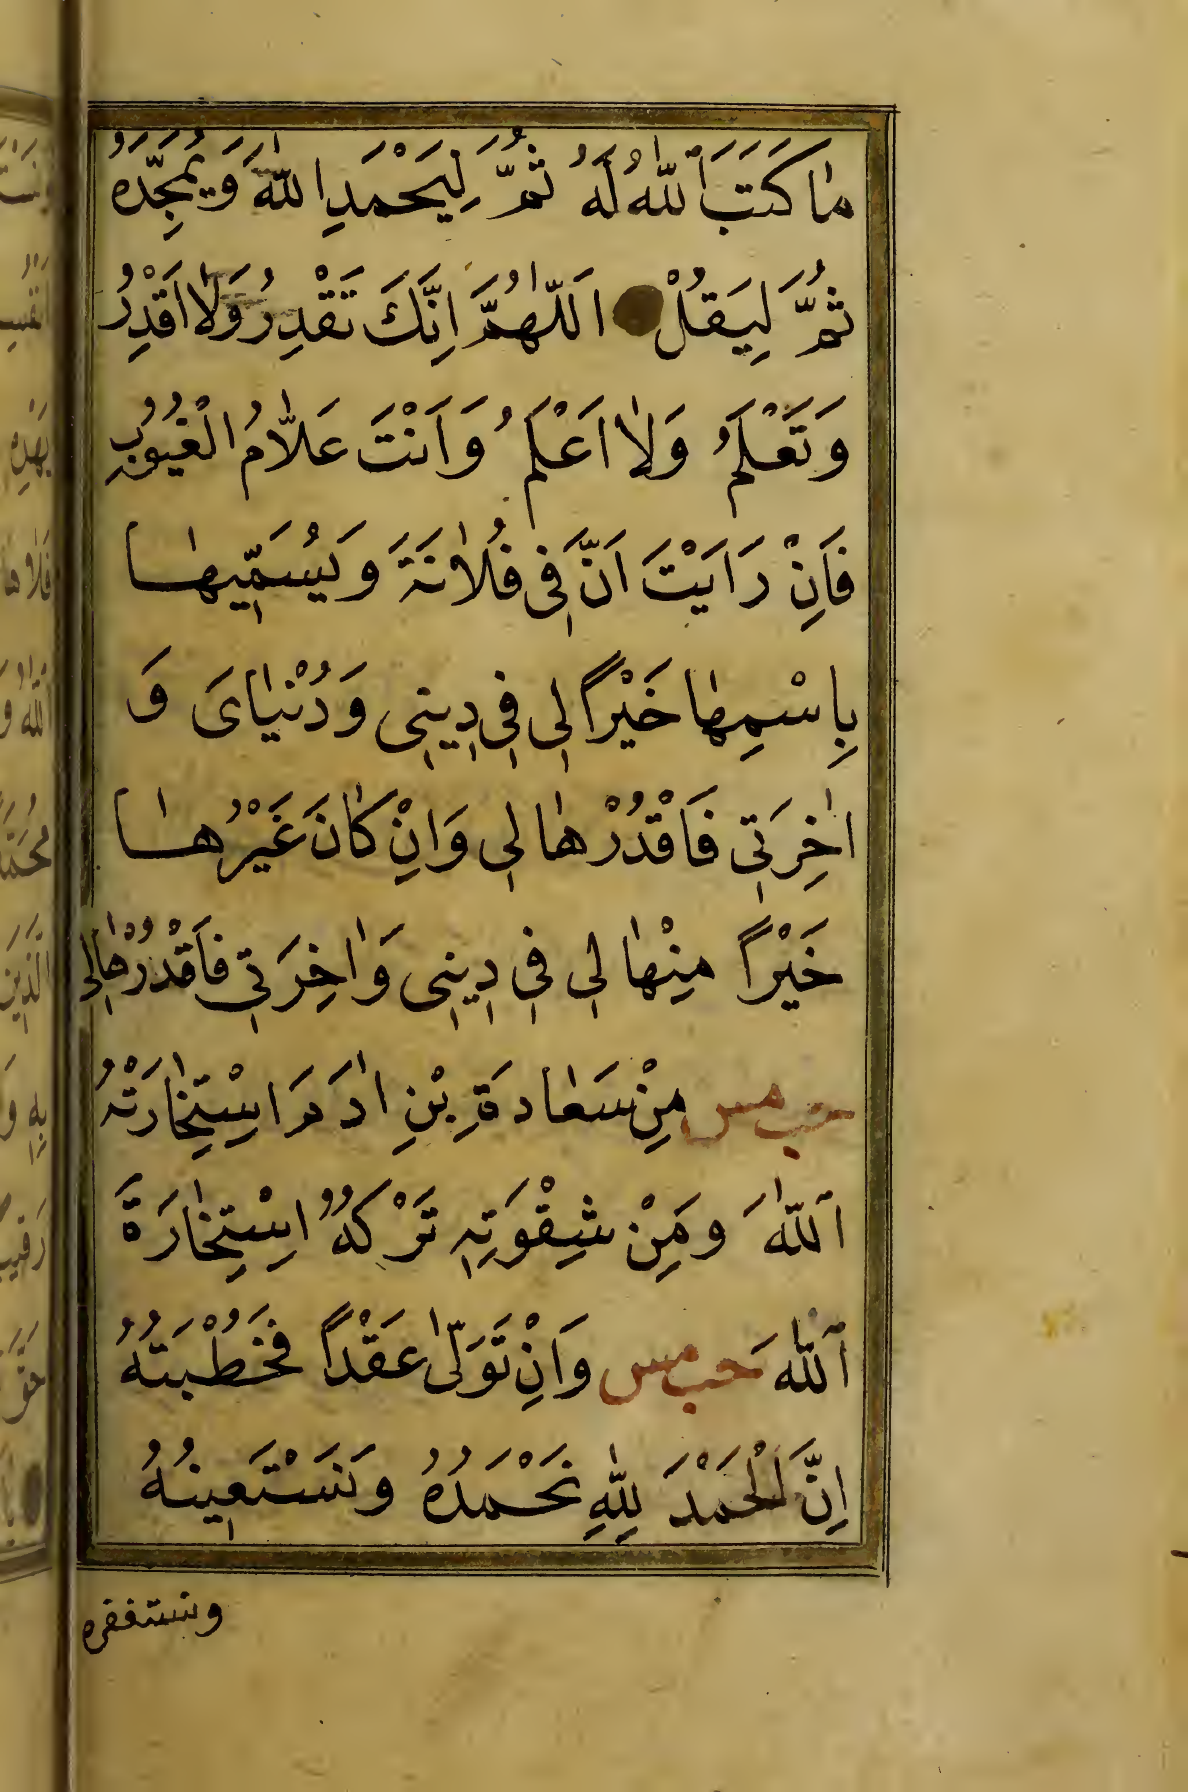 مَا كَتَبَ ٱللّٰهُ لَهُ ثُمَّ لِيَحْمَدِ اللّٰهَ وَيُمَجِّدُهُ
ثُمَّ لِيَقُلْ اَللّٰهُمَّ اِنَّكَ تَقْدِرُ وَلَا اَقْدِرُ
وَتَعْلَمُ وَلَا اَعْلَمُ وَاَنْتَ عَلَّامُ الْغُيُوبِ
فَاِنْ رَاَيْتَ اَنَّ فِي فُلَانَةَ وَيُسَمِّيهَا
بِاسْمِهَا خَيْرًا لِي فِي دِينِي وَدُنْيَايَ وَ
اٰخِرَتِي فَاقْدُرْهَا لِي وَاِنْ كَانَ غَيْرُهَا
خَيْرًا مِنْهَا لِي فِي دِينِي وَاٰخِرَتِي فَاقْدُرْهَا لِي
حب مس مِنْ سَعَادَةِ بْنِ اٰدَمَ اسْتِخَارَتُهُ
ٱللّٰهَ وَمِنْ شِقْوَتِهِ تَرْكُهُ اسْتِخَارَةَ
ٱللّٰهِ حب مس وَاِنْ تَوَلّٰى عَقْدًا فَخُطْبَتُهُ
اِنَّ الْحَمْدَ لِلّٰهِ نَحْمَدُهُ وَنَسْتَعِينُهُ
ونستغفره